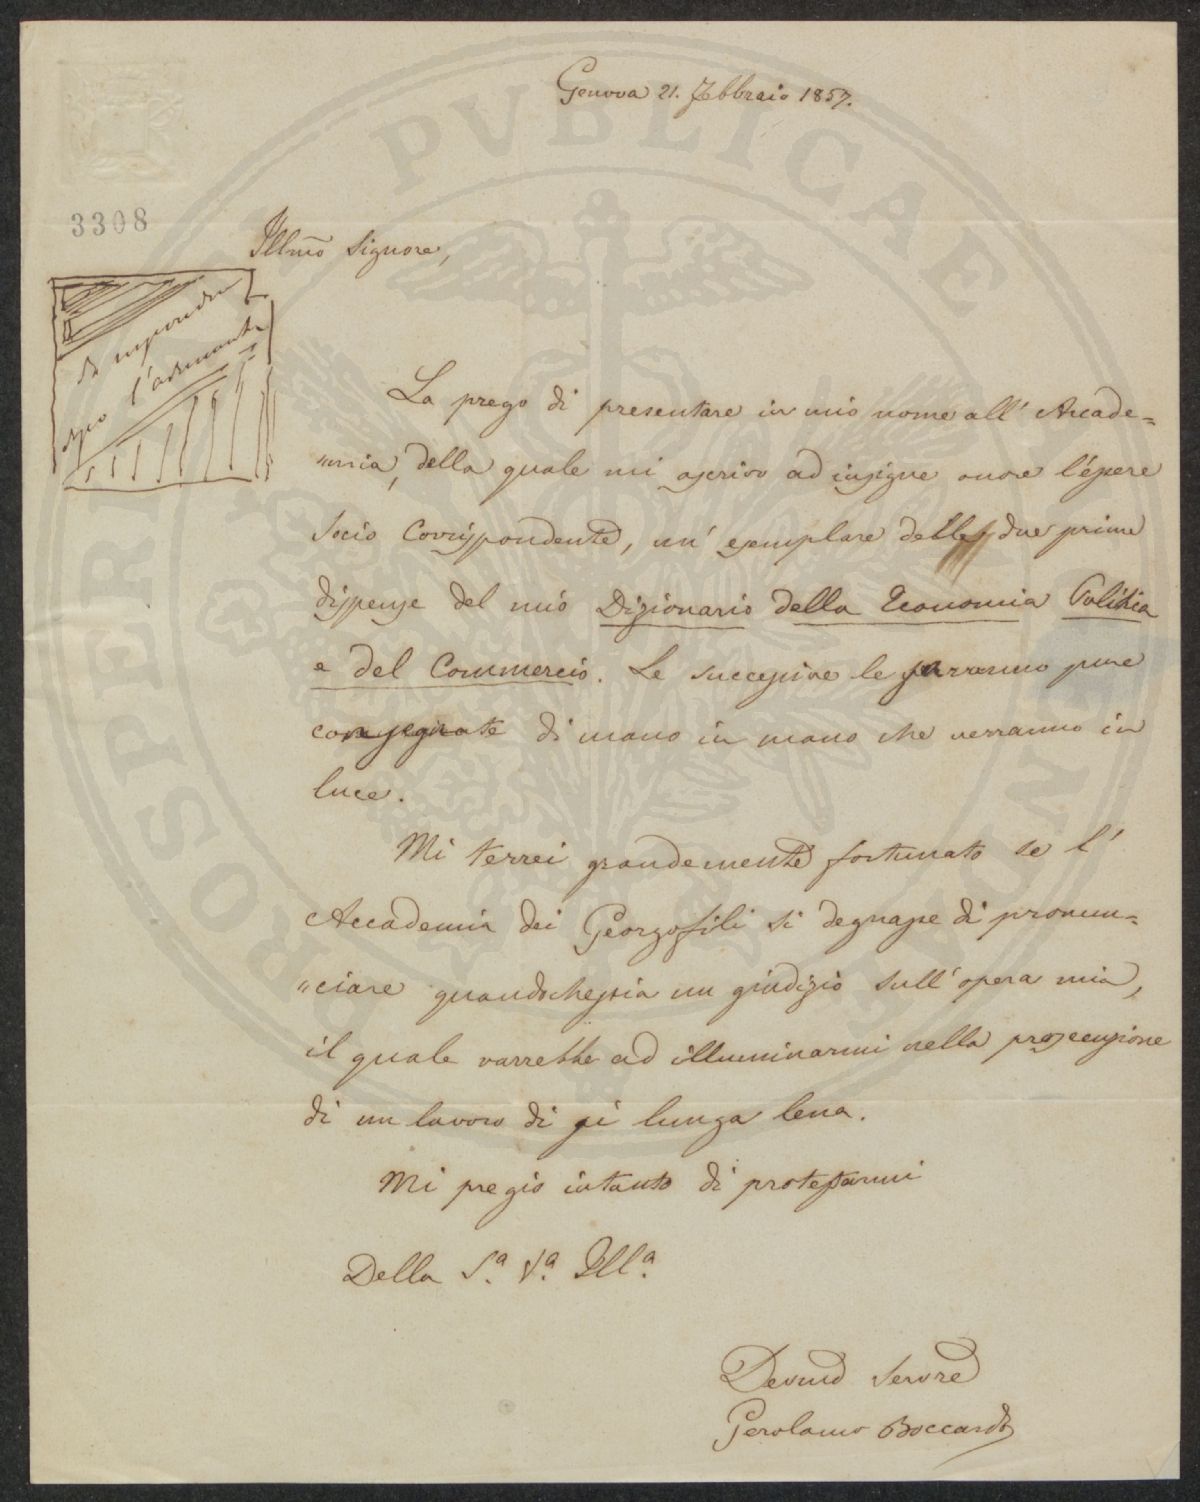 Genova 21. Febbraio 1857.
3308
Illmo Signore,
Si risponde
dopo l'adunanza
La prego di presentare in mio nome all' Accade=
"mia, della quale mi ascrivo ad insigne onore l'essere
Socio Corrispondente, un' esemplare delle due prime
dispense del mio Dizionario della Economia Politica
e del Commercio. Le successive le saranno pure
consegnate di mano in mano che verranno in
luce.
Mi terrei grandemente fortunato se l'
Accademia dei Georgofili si degnasse di pronun=
"ciare quandochessia un giudizio sull' opera mia,
il quale varrebbe ad illuminarmi nella prosecuzione
di un lavoro di sì lunga lena.
Mi pregio intanto di protestarmi
Della S.a V.a Ill.a
Devmo Servre
Gerolamo Boccardo
PROSPERITATI PVBLICAE AVGENDAE